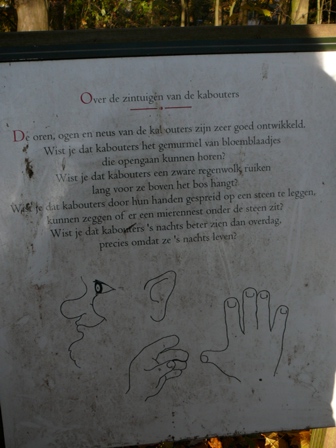 Over de zintuigen van de kabouters
De oren, ogen en neus van de kabouters zijn zeer goed ontwikkeld.
Wist je dat kabouters het gemurmel van bloemblaadjes
die opengaan kunnen horen?
Wist je dat kabouters een zware regenwolk ruiken
lang voor ze boven het bos hangt?
Wist je dat kabouters door hun handen gespreid op een steen te leggen,
kunnen zeggen of er een mierennest onder de steen zit?
Wist je dat kabouters 's nachts beter zien dan overdag,
precies omdat ze 's nachts leven?